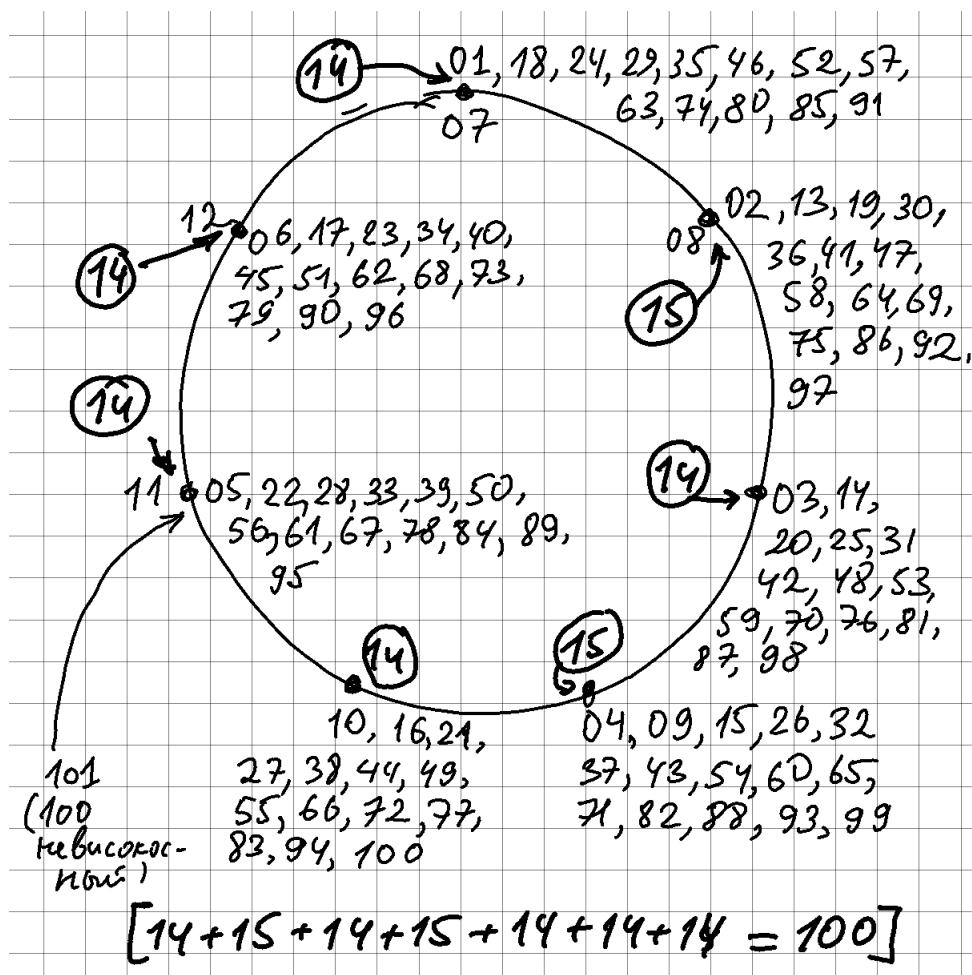 14
01, 18, 24, 29, 35, 46, 52, 57,
63, 74, 80, 85, 91
07
12
06, 17, 23, 34, 40,
45, 51, 62, 68, 73,
79, 90, 96
14
02, 13, 19, 30,
36, 41, 47,
58, 64, 69,
75, 86, 92,
97
08
15
14
11
05, 22, 28, 33, 39, 50,
56, 61, 67, 78, 84, 89,
95
14
03, 14,
20, 25, 31
42, 48, 53,
59, 70, 76, 81,
87, 98
14
10, 16, 21,
27, 38, 44, 49,
55, 66, 72, 77,
83, 94, 100
15
04, 09, 15, 26, 32
37, 43, 54, 60, 65,
71, 82, 88, 93, 99
101
(100
невисокос-
ный)
[14 + 15 + 14 + 15 + 14 + 14 + 14 = 100]